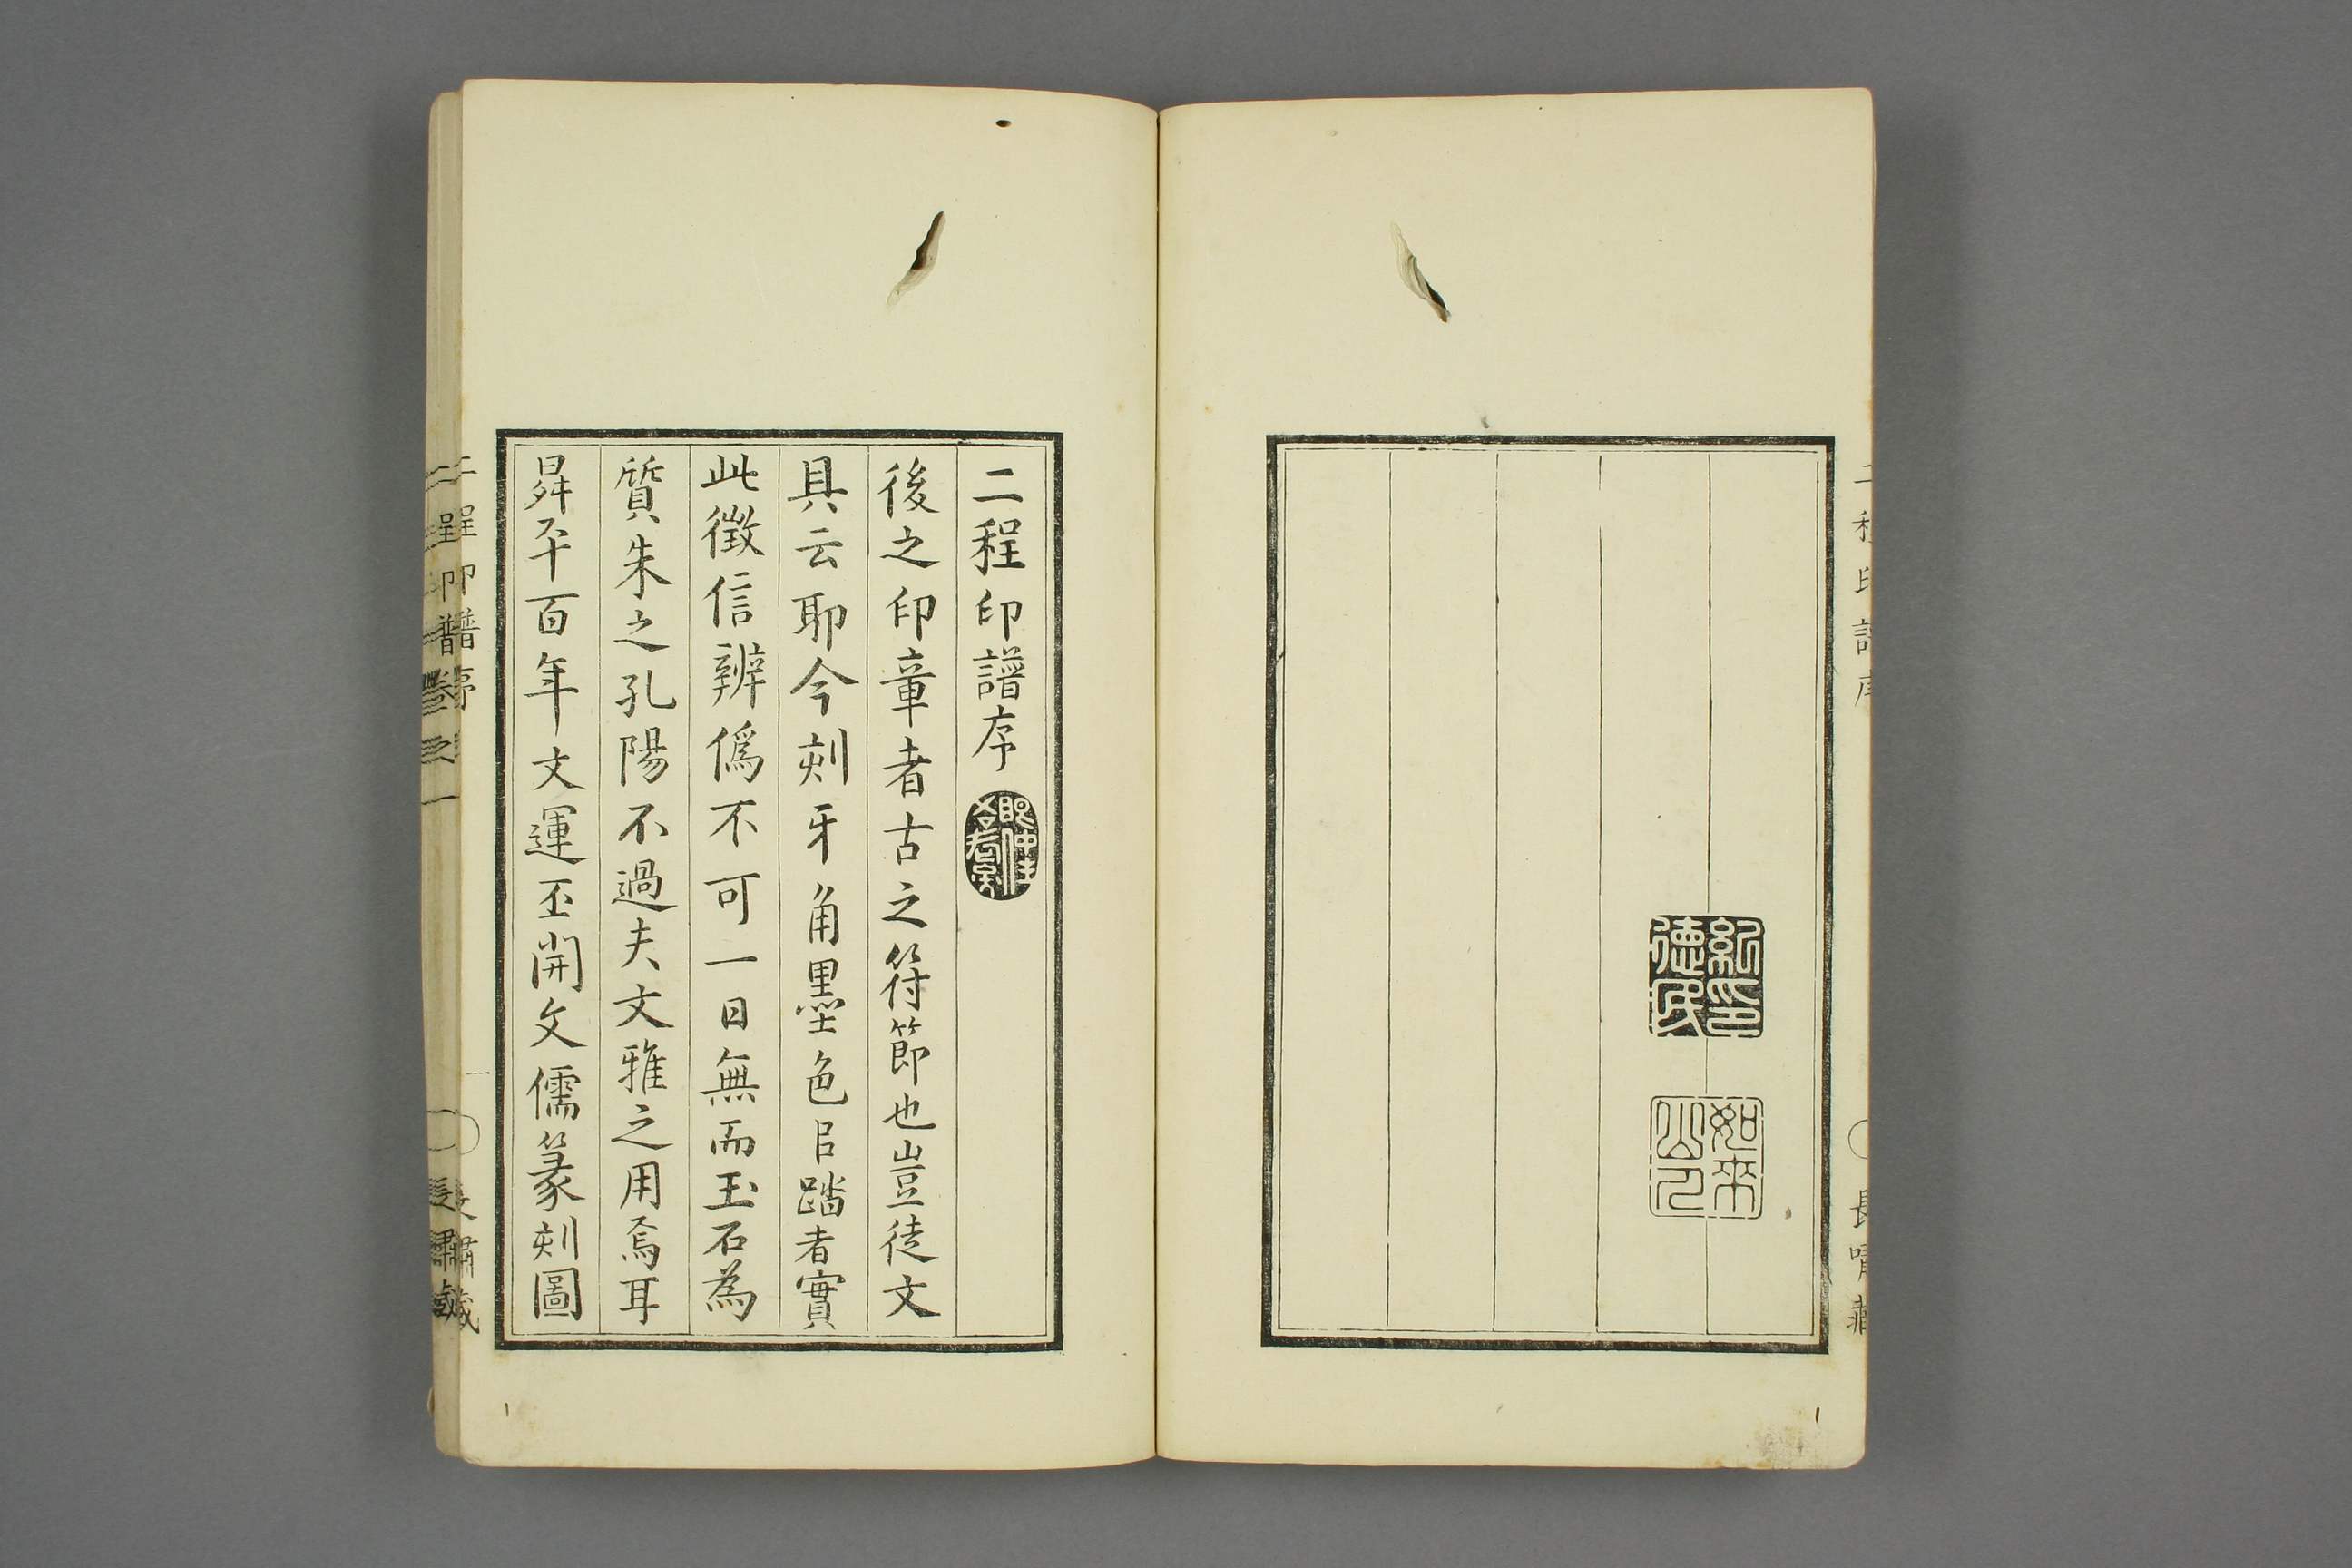 紀印德民
如來山人
二程印譜序
後之印章者古之符節也豈徒文
具云耶今刻牙角墨色㠯踏者實
此徵信辨偽不可一日無而玉石為
質朱之孔陽不過夫文雅之用焉耳
昇平百年文運丕開文儒篆刻圖
二程印譜序
長嘯藏
二程印譜卷之一
長嘯藏